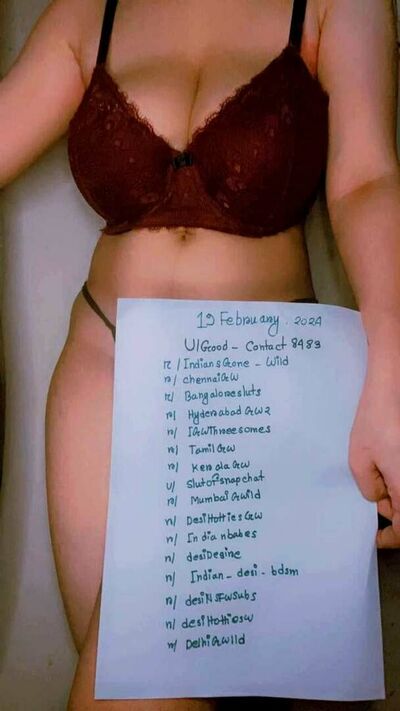 19 February. 2024
U/Good - Contact 8483
r/Indians Gone - Wild
r/chennai GW
r/Bangalore sluts
r/Hyderabad GW2
r/IGWThreesomes
r/Tamil GW
r/Kerala GW
u/slutofsnapchat
r/Mumbai GWild
r/DesiHottiesGW
r/Indian babes
r/desiDesire
r/Indian - desi - bdsm
r/desiNSFWSubs
r/desiHottiesW
r/DelhiGWild